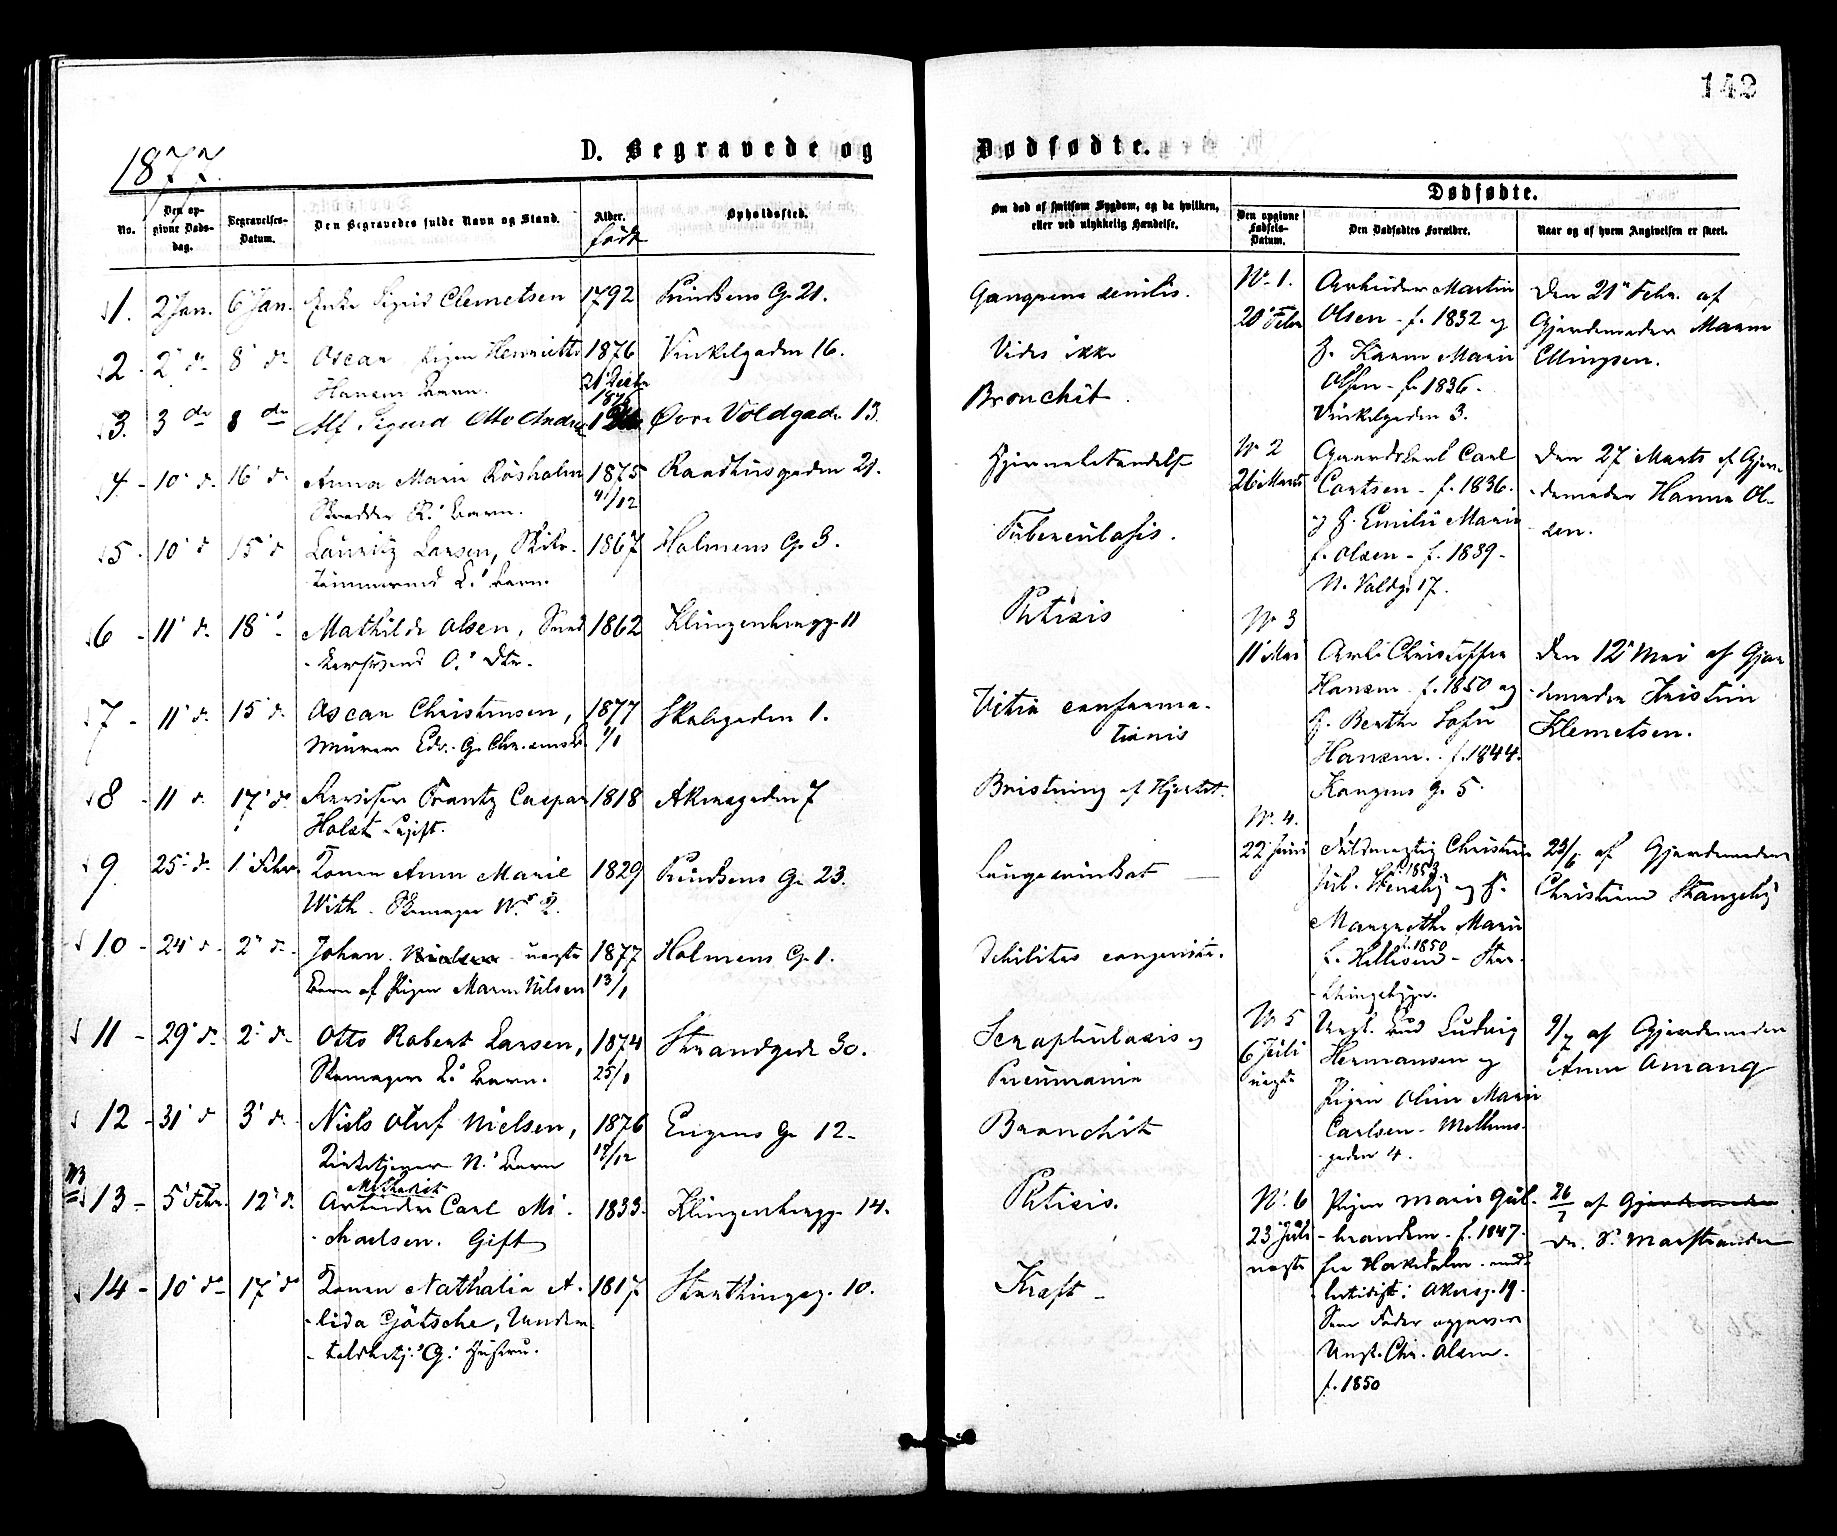 142
1877.
D. Begravede og
Dødfødte.
No.
Den op-
givne Døds-
dag.
Begravelses-
Datum.
Den Begravedes fulde Navn og Stand.
Alder.
født
Opholdssted.
1. 2 Jan. 6 Jan. Enke Sigrid Clemetsen 1792 Prindsens G. 21.
2 - 2 d. 8 d. Oscar, Pigen Henriette 1876 Vinkelgaden 16.
Hansens Barn. 21 Decbr
1876
3. 3 do 8 do Alf Sigurd Otto Øvre Voldgade 13
4 - 10 d. 16 d. Anna Marie Rosholm 1875 Raadhusgaden 21.
Skrædder R.s Barn.
5 - 10 d. 15 d. Lauritz Larsen, Skibs- 1867 Holmens G. 3.
tømmermd L.s Barn.
6 - 11 d. 18 - Mathilde Olsen, 1862 Klingenbergg. 11
O.s Dtr.
7 - 11 d. 15 d. Oscar Christensen, 1877 Skolegaden 1.
Murer Edv. G.
8 - 11 d. 17 d. Frantz Caspar 1818 Akersgaden 7
Holst Ugift.
9 25 d. 1 Febr. Konen Anne Marie 1829 Prindsens G. 23.
With. Skomager W.s K.
10 - 24 d. 2 d. Johan uægte 1877 Holmens G. 1.
Barn af Pigen Maren Nilsen 13/1
11 - 29 d. 2 d. Otto Robert Larsen, 1874 Strandgade 30.
Skomager L.s Barn. 25/1
12 - 31 d. 3 d. Niels Oluf Nielsen, 1876 Eugens G. 12.
Kirketjener N.s Barn
13 - 5 Febr. 12 d. Methodist
Arbeider Carl Mi- 1833. Klingenbergg. 14.
chaelsen. Gift
14 - 10 do 17 do Konen Nathalia A- 1817. Størthingsg. 10.
lida Gøtsche,
G.s Hustru.
Om død af smitsom Sygdom, og da hvilken,
eller ved ulykkelig Hændelse.
Gangrena senilis.
Vides ikke
Bronchit.
Hjernebetændelse
Tuberculosis.
Phtisis
Vitia conforma-
tionis
Bristning af Hjertet.
Lungesvindsot
Debilitas congenita.
Scrophulosis og
Pneumonia
Bronchit
Phtisis.
Kræft -
Dødfødte.
Den opgivne
Fødsels-
Datum.
Den Dødfødtes Forældre.
Naar og af hvem Angivelsen er skeet.
No. 1.
20 Febr
Arbeider Martin
Olsen - f. 1832 og
H. Karen Marie
Olsen - f. 1836.
Vinkelgaden 3.
Den 21 Febr. af
Gjordemoder Maren
Ellingsen.
No 2
26 Marts
Gaardskarl Carl
Carlsen - f. 1836.
og H. Emilie Marie
f. Olsen - f. 1839 -
N. Voldg. 17.
Den 27 Marts af Gjor-
demoder Hanna Ol-
sen.
No 3
11 Mai
Arb. Christoffer
Hansen - f. 1850 og
H. Berthe Sofie
Hansen. - f. 1844.
Kongens G. 5.
Den 12 Mai af Gjor-
demoder Kristine
Klemetsen.
No. 4.
22 Juni
Fuldmægtig Christian
f. 1853
Jul. og H.
Margrethe Marie
f. 1850
23/6 af Gjordemoder
Christiane Stangeby
No 5
6 Juli
uægte
Ungk. Ludvig
Hermansen og
Pigen Oline Marie
Carlsen - Møllers-
gaden 4.
9/7 af Gjordemoder
Anne Amang
N. 6
23 Juli
uægte
Pigen Marie Gul-
brandsen. f. 1847.
fra Hakedalen
Akersg. 19.
Som Fader opgives
Ungk. Chr. Olsen.
f. 1850
26/7 af Gjordemoder
Dr. S. Marstrander